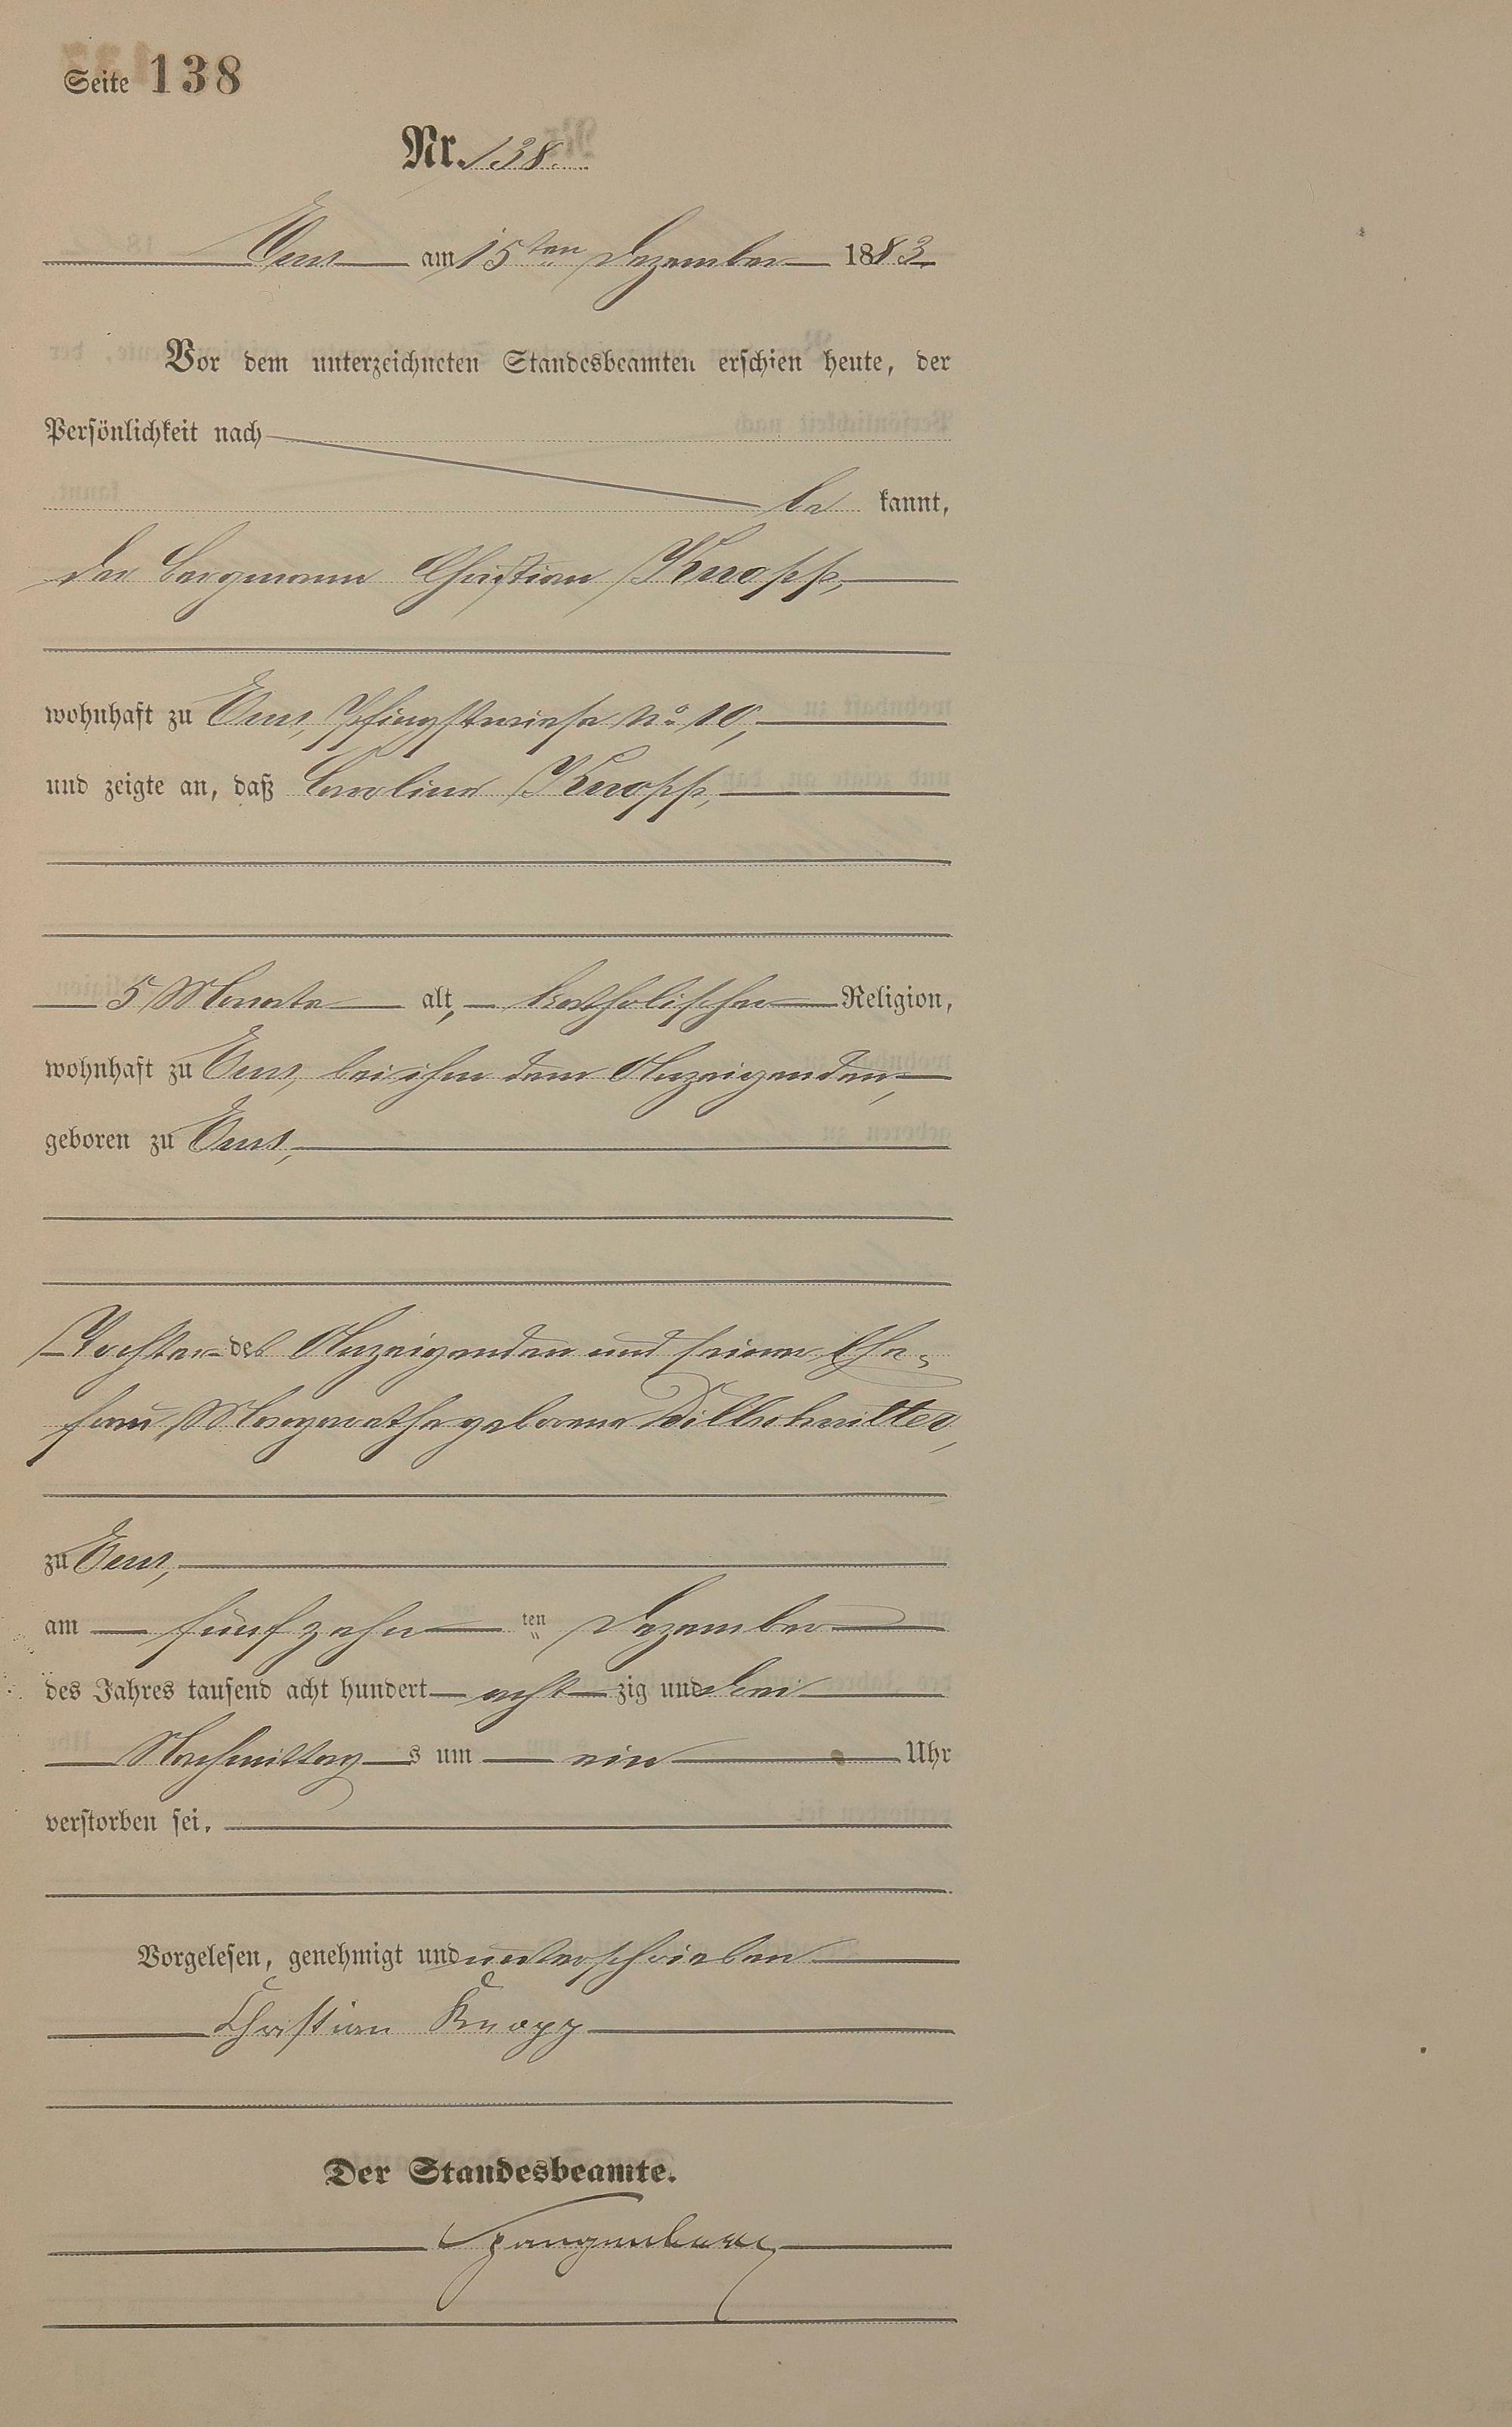 Seite 138
Nr. 138.
Ems am 15ten Dezember 1883.
Vor dem unterzeichneten Standesbeamten erschien heute, der
Persönlichkeit nach
be kannt,
der Bergmann Christian Knopp,
wohnhaft zu Ems, Pfingstwiese No 10,
und zeigte an, daß Carolina Knopp,
5 Monate alt, katholischer Religion,
wohnhaft zu Ems, bei ihm dem Anzeigenden,
geboren zu Ems,
Tochter des Anzeigenden und seiner Ehe-
frau Margarethe geborene Dillschnitter,
zu Ems,
am fünfzehnten Dezember
des Jahres tausend acht hundert acht zig und drei
Nachmittags um ein Uhr
verstorben sei.
Vorgelesen, genehmigt und unterschrieben
Christian Knopp
Der Standesbeamte.
Spangenberg